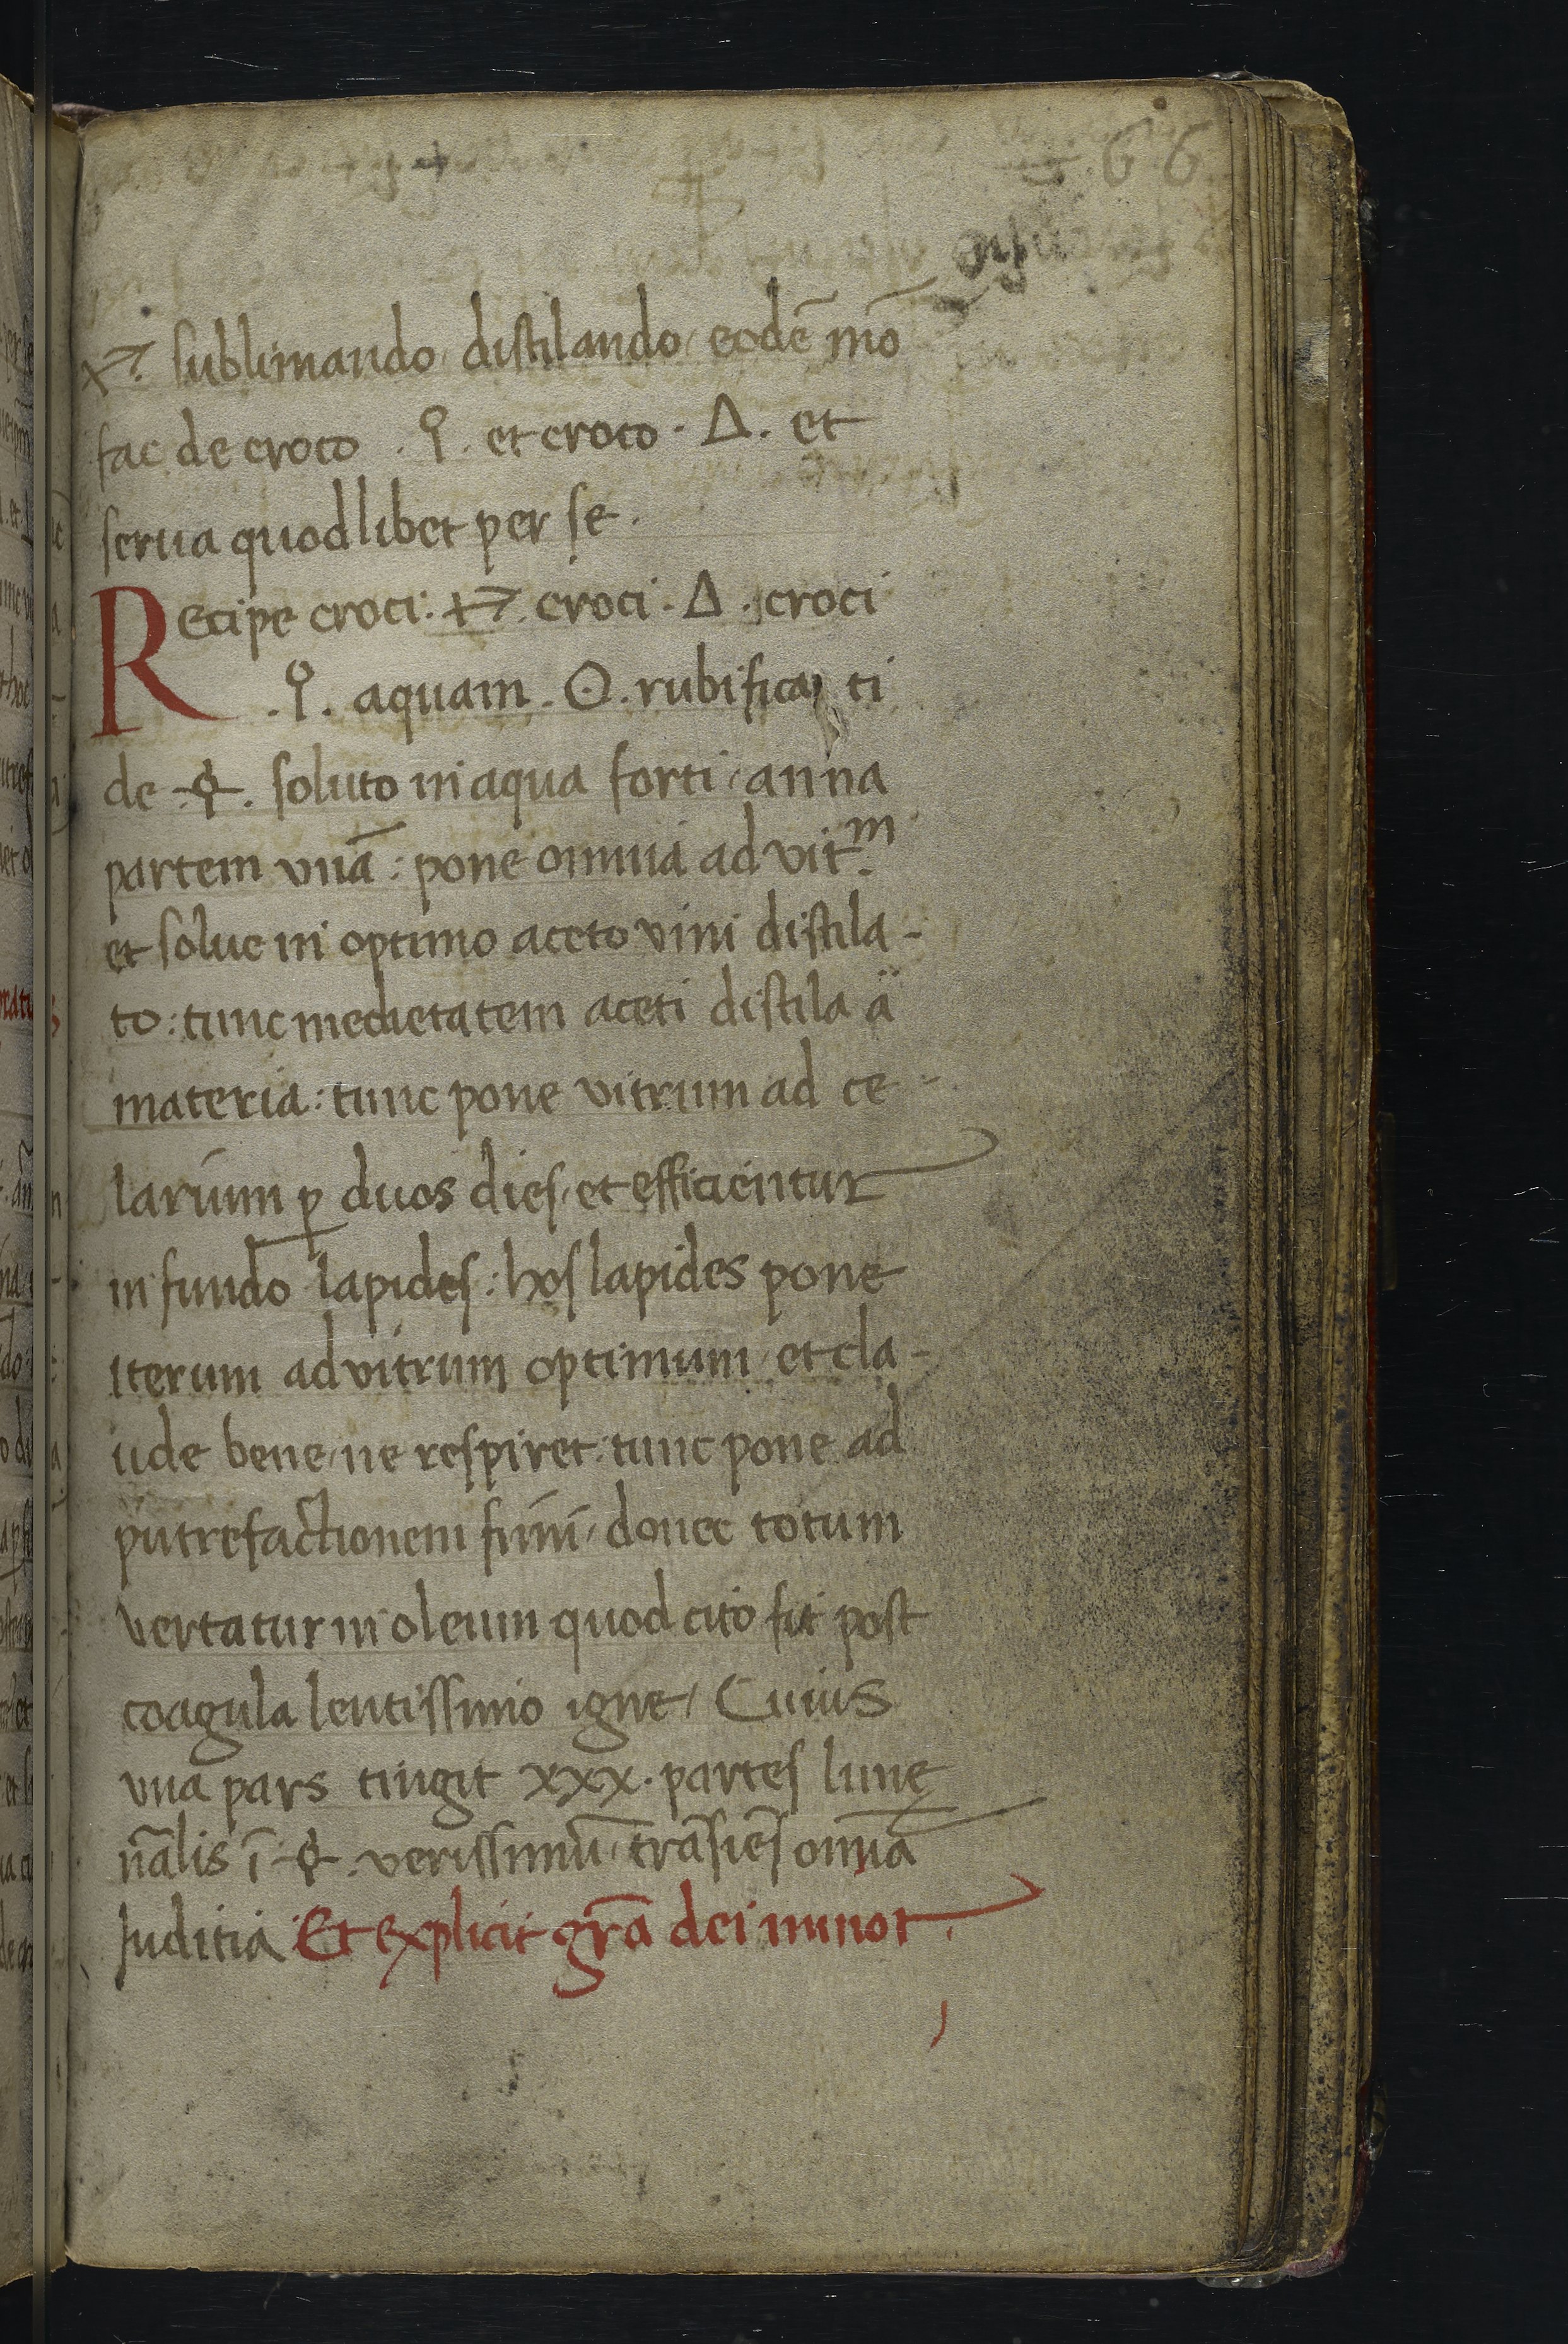 66
♃. sublimando, distilando, eodē mō
fac de croco . ♀. et croco . Δ. et
serua quodlibet per se.
Recipe croci: ♃. croci . Δ . croci
. ♀. aquam . ʘ. rubificati
de . soluto in aqua forti, an̄na
partem vnā : pone omnia ad vitᵐ.
et solue in optimo aceto vini distila-
to: tunc medietatem aceti distila a
materia: tunc pone vitrum ad ce-
larium ꝑ duos dies, et efficientur
in fundo lapides: hos lapides pone
iterum ad vitrum optimum, et cla-
ude bene, ne respiret: tunc pone ad
putrefactionem fimi, donec totum
vertatur in oleum quod cito fit post
coagula lentissimo igne, Cuius
vna pars tingit xxx. partes lune
nālis ī . verissimū, trāsiēs omnia
Juditia Et explicit grā dei minor.